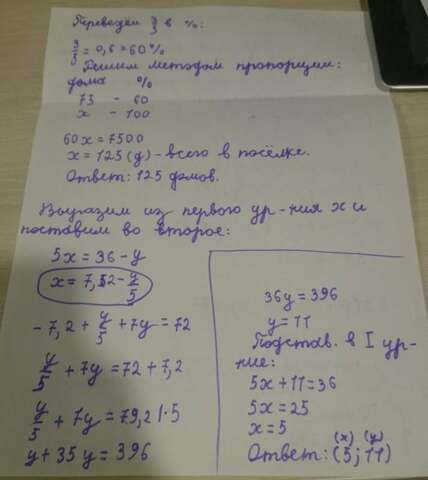 Переведём 3/5 в %:
3/5 = 0,6 = 60%
Решим методом пропорции:
дома %
75 - 60
x - 100
60x = 7500
x = 125 (д) - всего в посёлке.
Ответ: 125 домов.
Выразим из первого ур-ния x и
поставим во второе:
5x = 36 - y
x = 7,2 - y/5
-7,2 + y/5 + 7y = 72
y/5 + 7y = 72 + 7,2
y/5 + 7y = 79,2 | · 5
y + 35y = 396
36y = 396
y = 11
Подстав. в I ур-
ние:
5x + 11 = 36
5x = 25
x = 5
(x) (y)
Ответ: (5; 11)